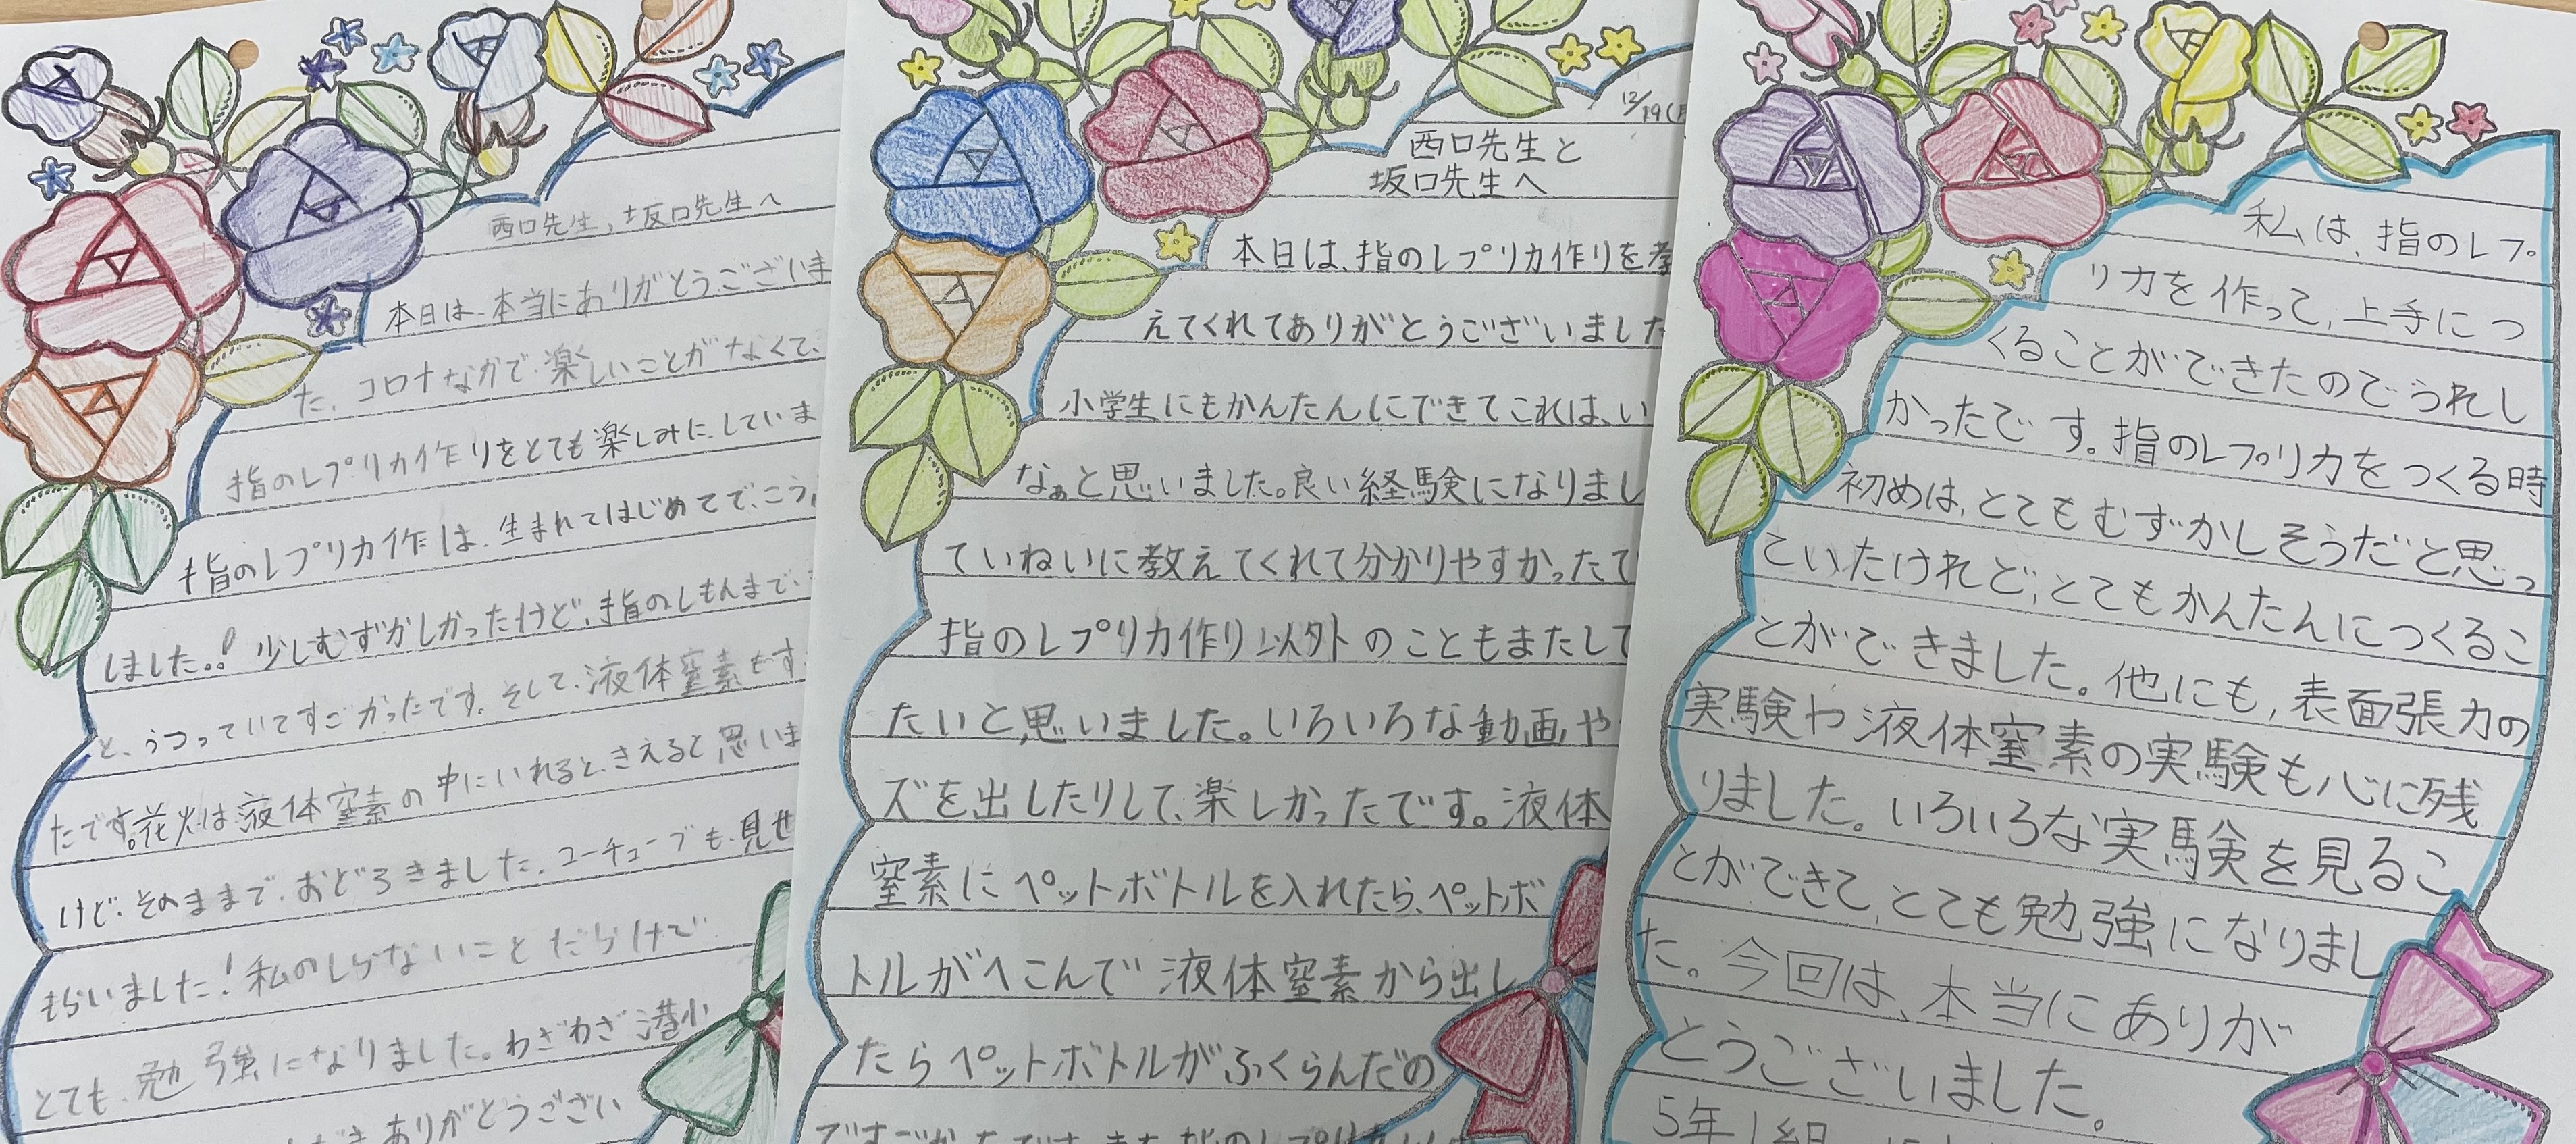 西口先生、坂口先生へ
本日は、本当にありがとうございま
た。コロナなかで、楽しいことがなくて、
指のレプリカ作りをとても楽しみに、していま
指のレプリカ作は、生まれてはじめてで、こう
しました。! 少しむずかしかったけど、指のしもんまで、
と、うつっていてすごかったです。そして、液体窒素もす
たです。花火は液体窒素の中にいれると、きえると思いま
けど、そのままで、おどろきました。ユーチューブも、見せ
もらいました!私のしらないことだらけで
とても、勉強になりました。わざわざ港小
ありがとうござい
12/19(
西口先生と
坂口先生へ
本日は、指のレプリカ作りを教
えてくれてありがとうございました
小学生にもかんたんにできてこれは、い
なぁと思いました。良い経験になりまし
ていねいに教えてくれて分かりやすかったで
指のレプリカ作り以外のこともまたして
たいと思いました。いろいろな動画や
ズを出したりして、楽しかったです。液体
窒素にペットボトルを入れたら、ペットボ
トルがへこんで液体窒素から出し
たらペットボトルがふくらんだの
私は、指のレプ
リカを作って、上手につ
くることができたのでうれし
かったです。指のレプリカをつくる時
初めは、とてもむずかしそうだと思っ
ていたけれど、とてもかんたんにつくるこ
とができました。他にも、表面張力の
実験や液体窒素の実験も心に残
りました。いろいろな実験を見るこ
とができて、とても勉強になりまし
た。今回は、本当にありが
とうございました。
5年1組